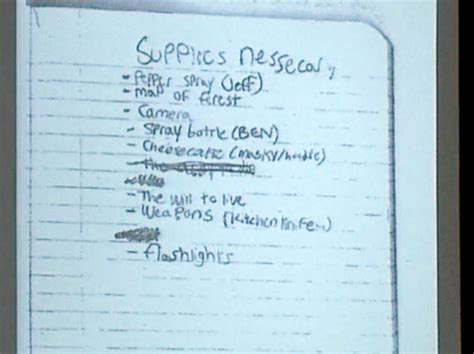 Supplies nessecary
- Pepper spray (Jeff)
- map of forest
- Camera
- Spray bottle (BEN)
- Cheesecake (masky/hoodie)
- The will to live
- Weapons (kitchen knife...)
- flashlights